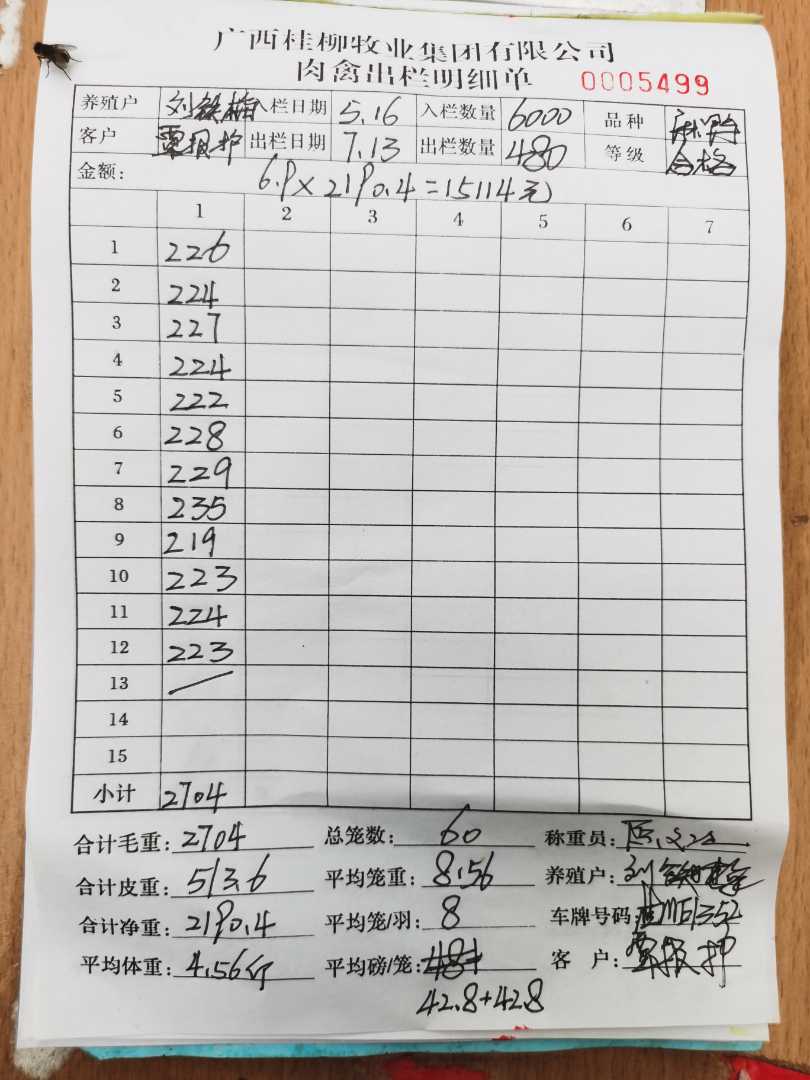 广西桂柳牧业集团有限公司
肉禽出栏明细单 0005499
养殖户 刘铁梅 入栏日期 5.16 入栏数量 6000 品种
客户 覃报护 出栏日期 7.13 出栏数量 480 等级 合格
金额: 6.9×2190.4=15114元
1 2 3 4 5 6 7
1 226
2 224
3 227
4 224
5 222
6 228
7 229
8 235
9 219
10 223
11 224
12 223
13 /
14
15
小计 2704
合计毛重: 2704 总笼数: 60 称重员:
合计皮重: 513.6 平均笼重: 8.56 养殖户: 刘
合计净重: 2190.4 平均笼/羽: 8 车牌号码:
平均体重: 4.56斤 平均磅/笼: 客 户: 覃报护
42.8+42.8